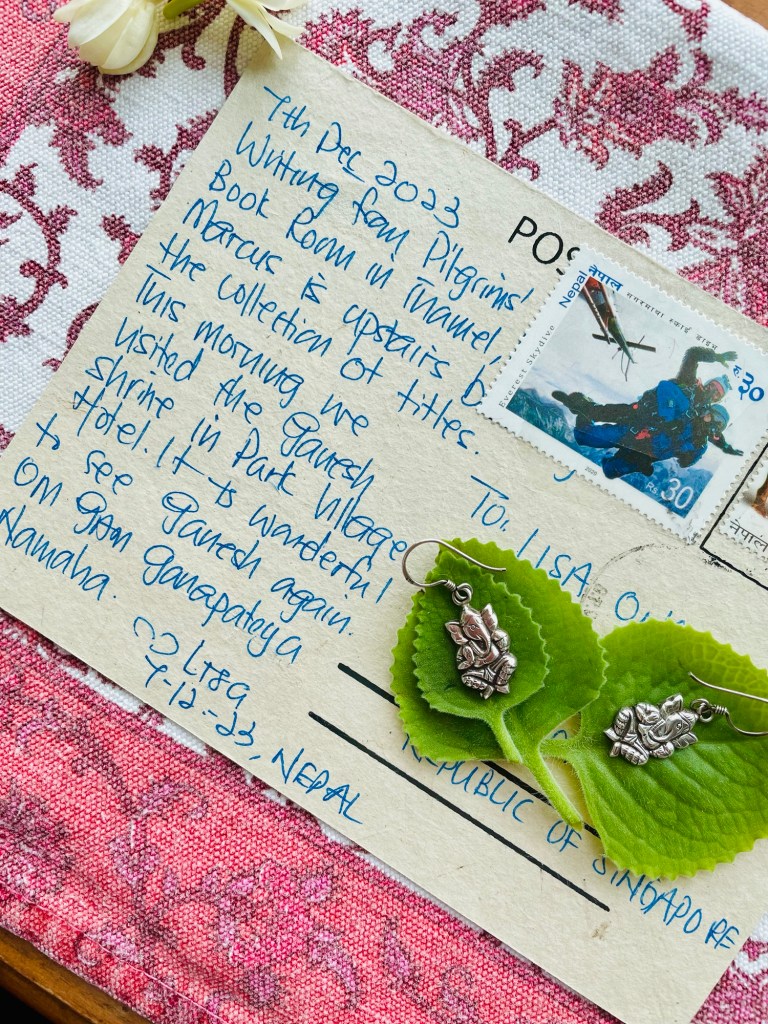 7th Dec 2023
Writing from Pilgrims'
Book Room in Thamel,
Marcus is upstairs b
the collection of titles.
This morning we
visited the Ganesh
shrine in Park Village
Hotel. It is wonderful
to see Ganesh again.
OM gam ganapataya
Namaha.
Lisa
7-12-23, NEPAL
POS
Nepal नेपाल
एभरेष्ट स्काई डाइभ
रु. ३०
Everest Skydive
Rs. 30
नेपाल
To, LISA
REPUBLIC OF SINGAPORE